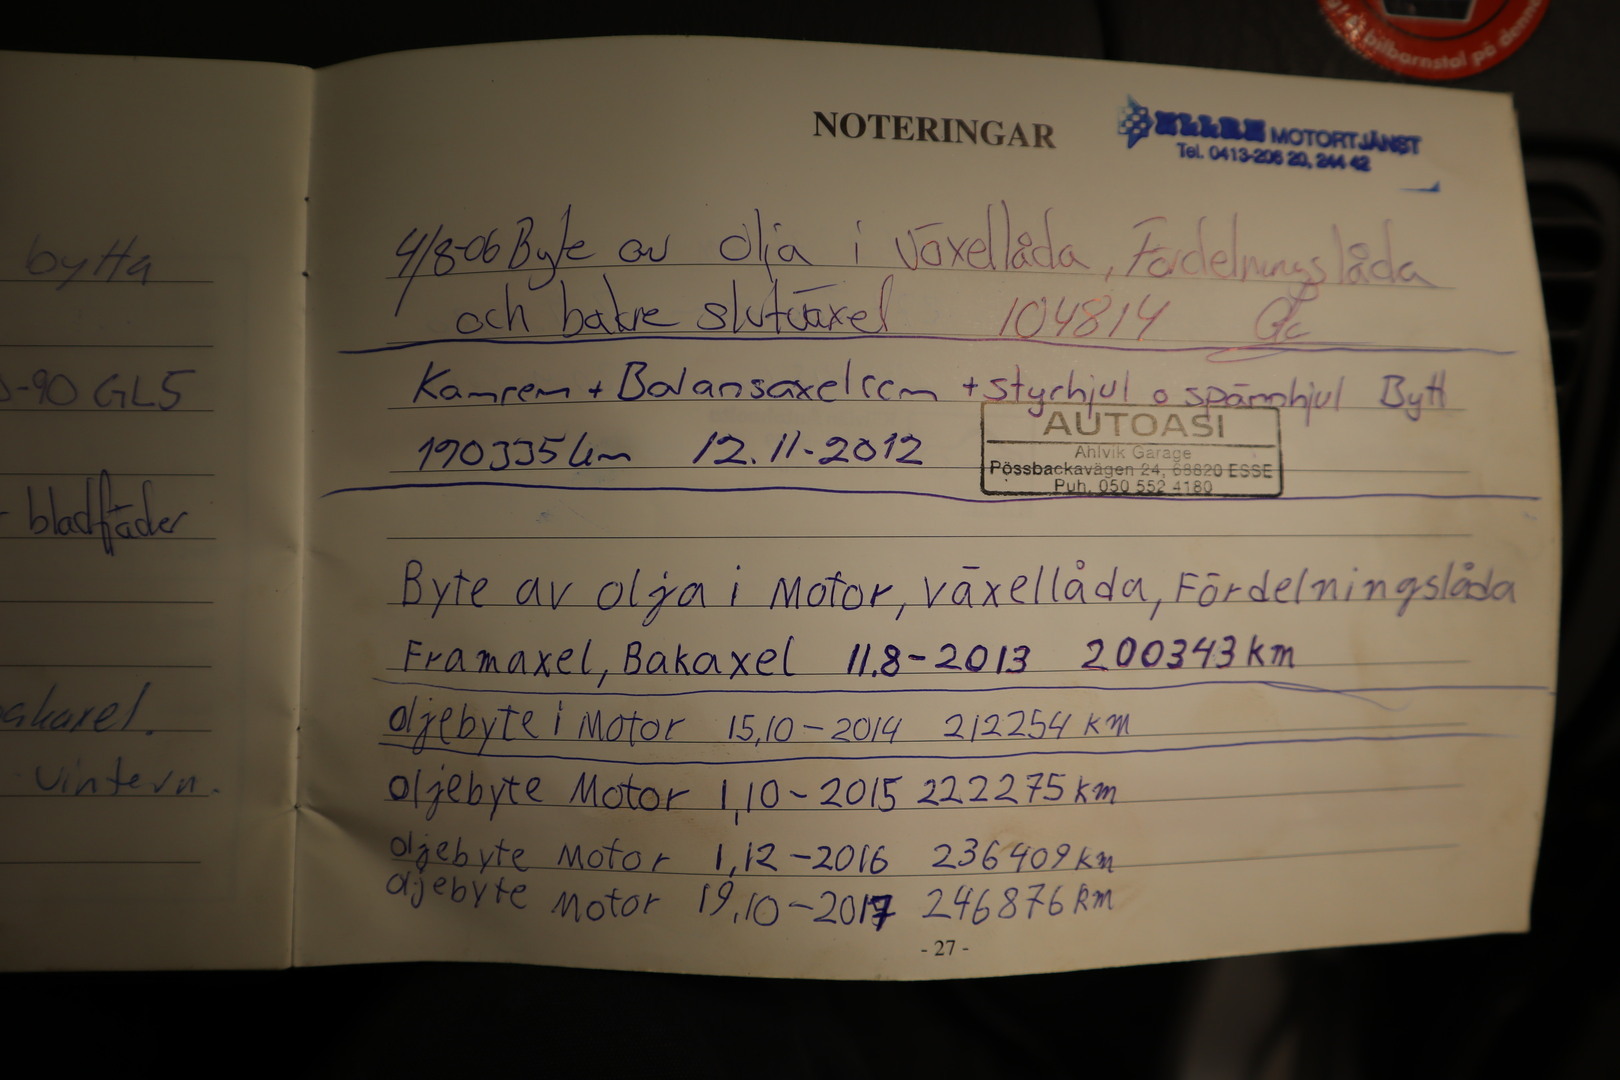 bilbarnstol på denna
NOTERINGAR
MOTORTJÄNST
Tel. 0413-206 20, 244 42
4/8-06 Byte av olja i växellåda, Fördelningslåda
och bakre slutväxel 104814
Kamrem + Balansaxelrem + styrhjul o spännhjul Bytt
190335 km 12.11-2012
AUTOASI
Ahlvik Garage
Pössbackavägen 24, 68820 ESSE
Puh. 050 552 4180
Byte av olja i Motor, växellåda, Fördelningslåda
Framaxel, Bakaxel 11.8-2013 200343 km
oljebyte i Motor 15,10-2014 212254 km
oljebyte Motor 1,10-2015 222275 km
oljebyte Motor 1,12-2016 236409 km
oljebyte Motor 19,10-2017 246876 km
- 27 -
bytta
-90 GL5
bladfjäder
akaxel.
vintern.